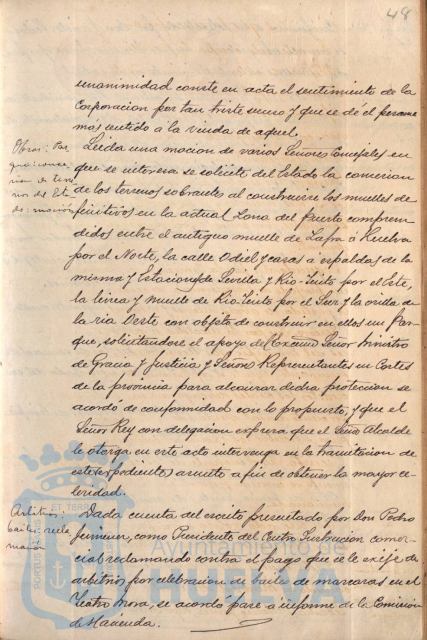 48
unanimidad conste en acta el sentimiento de la
Corporacion por tan triste suceso y que se dé el pésame
mas sentido á la viuda de aquel.
Obras: Par
que
Leida una mocion de varios Señores Concejales en
que se interesa se solicite del Estado la concesion
de los terrenos sobrantes al construirse los muelles de
finitivos en la actual Zona del Puerto compren
didos entre el antiguo muelle de Zafra á Huelva
por el Norte, la calle Odiel y casas á espaldas de la
misma y Estaciones de Sevilla y Rio-Tinto por el Este,
la linea y muelle de Rio-Tinto por el Sur y la orilla de
la ria Oeste con objeto de construir en ellos un Par
que, solicitandose el apoyo del Excmo Señor Ministro
de Gracia y Justicia y Señores Representantes en Cortes
de la provincia para alcanzar dicha proteccion se
acordó de conformidad con lo propuesto, y que el
Señor Rey con delegacion expresa que el Señor Alcalde
le otorga en este acto intervenga en la tramitacion de
este (expediente) asunto á fin de obtener la mayor ce
leridad.
Arbitrio,
baile recla
macion
Dada cuenta del escrito presentado por Don Pedro
Jimenez, como Presidente del Centro Instruccion comer
cial reclamando contra el pago que se le exije de
arbitrios por celebracion de baile de mascaras en el
Teatro Mora, se acordó pase á informe de la Comision
de Hacienda.
Ayuntamiento de
HUELVA